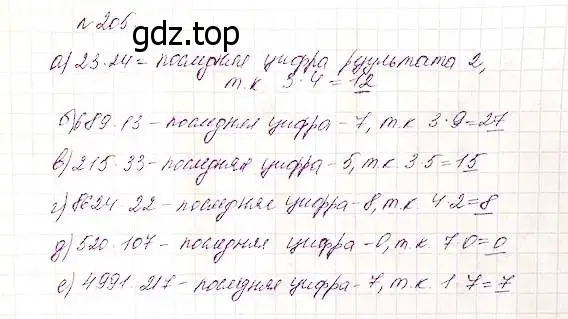 № 205
gdz.top
а) 23·24 = последняя цифра результата 2,
т.к 3·4=12
б) 689·13 - последняя цифра - 7, т.к 3·9=27
в) 215·33 - последняя цифра - 5, т.к 3·5=15
г) 8624·22 - последняя цифра - 8, т.к. 4·2=8
д) 520·107 - последняя цифра - 0, т.к. 7·0=0
е) 4991·217 - последняя цифра - 7, т.к. 1·7=7